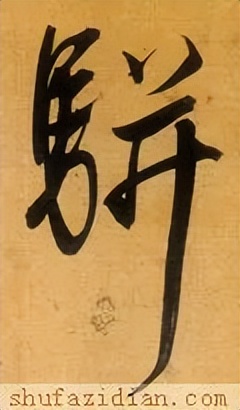 駢
shufazidian.com